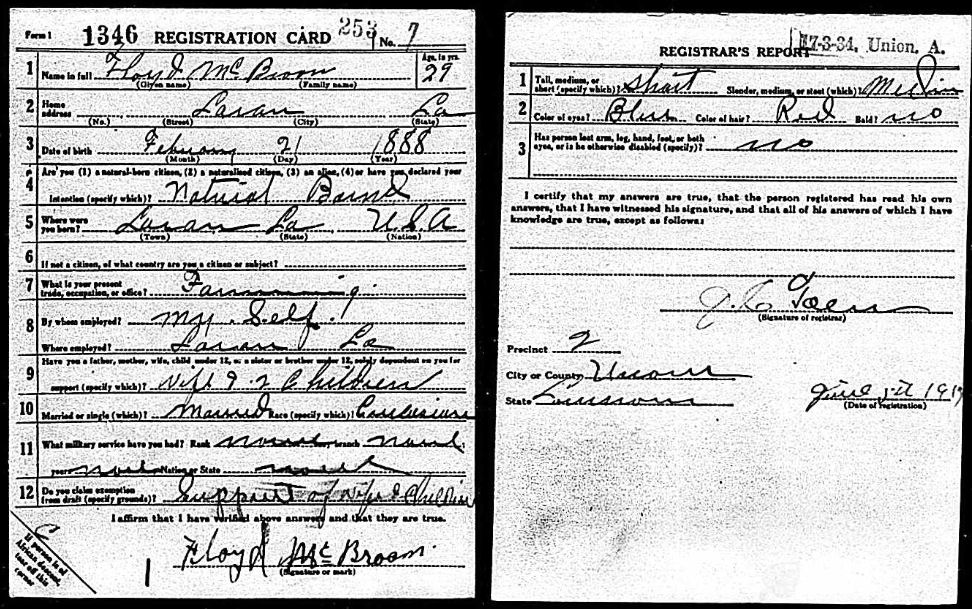 Form 1 1346 REGISTRATION CARD 253 No. 7
1 Name in full Floyd Mc Broom Age, in yrs. 29
(Given name) (Family name)
2 Home address Loran La
(No.) (Street) (City) (State)
3 Date of birth February 21 1888
(Month) (Day) (Year)
4 Are you (1) a natural-born citizen, (2) a naturalized citizen, (3) an alien, (4) or have you declared your
intention (specify which)? Natural Born
5 Where were you born? Loran La U.S.A
(Town) (State) (Nation)
6 If not a citizen, of what country are you a citizen or subject?
7 What is your present trade, occupation, or office? Farming
8 By whom employed? My Self
Where employed? Loran La
9 Have you a father, mother, wife, child under 12, or a sister or brother under 12, solely dependent on you for
support (specify which)? Wife & 2 Children
10 Married or single (which)? Married Race (specify which)? Caucasian
11 What military service have you had? Rank none branch none
years none Nation or State none
12 Do you claim exemption from draft (specify grounds)? Support of Wife & Children
I affirm that I have verified above answers and that they are true.
Floyd Mc Broom.
(Signature or mark)
If person is of African descent, tear off this corner
REGISTRAR'S REPORT 17-3-34, Union. A.
1 Tall, medium, or short (specify which)? Short Slender, medium, or stout (which)? Medium
2 Color of eyes? Blue Color of hair? Red Bald? no
3 Has person lost arm, leg, hand, foot, or both eyes, or is he otherwise disabled (specify)? no
I certify that my answers are true, that the person registered has read his own
answers, that I have witnessed his signature, and that all of his answers of which I have
knowledge are true, except as follows:
(Signature of registrar)
Precinct 2
City or County Union
State Louisiana June 5th 1917
(Date of registration)